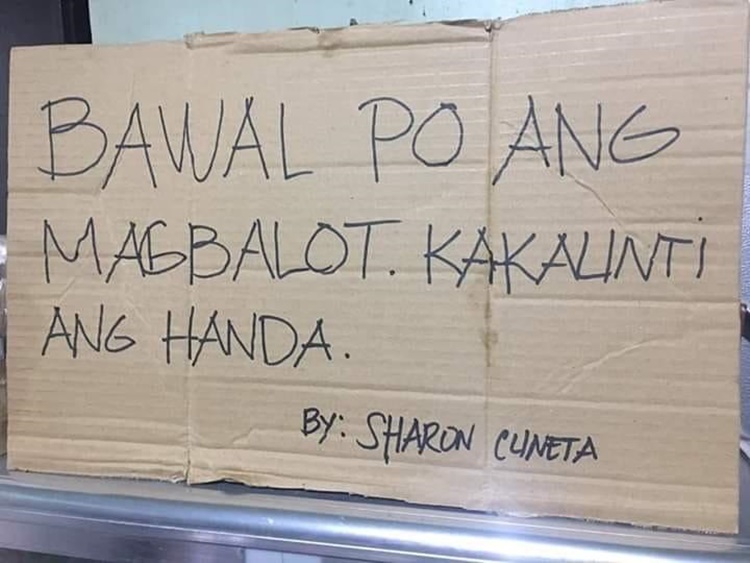 BAWAL PO ANG
MAGBALOT. KAKAUNTI
ANG HANDA.
BY: SHARON CUNETA